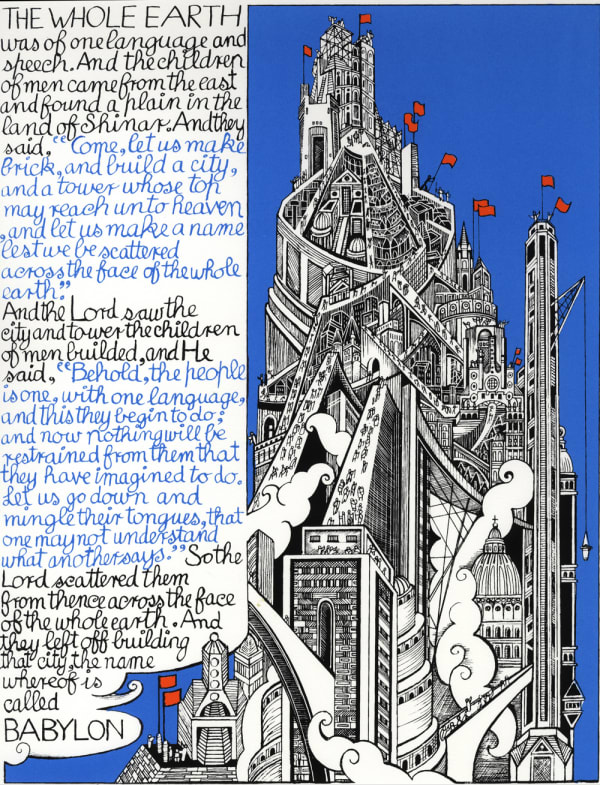 THE WHOLE EARTH
was of one language and
speech. And the children
of men came from the east
and found a plain in the
land of Shinar. And they
said, "Come, let us make
brick, and build a city,
and a tower whose top
may reach unto heaven
, and let us make a name
lest we be scattered
across the face of the whole
earth."
And the Lord saw the
city and tower the children
of men builded, and He
said, "Behold, the people
is one, with one language,
and this they begin to do;
and now nothing will be
restrained from them that
they have imagined to do.
Let us go down and
mingle their tongues, that
one may not understand
what another says." So the
Lord scattered them
from thence across the face
of the whole earth. And
they left off building
that city, the name
whereof is
called
BABYLON